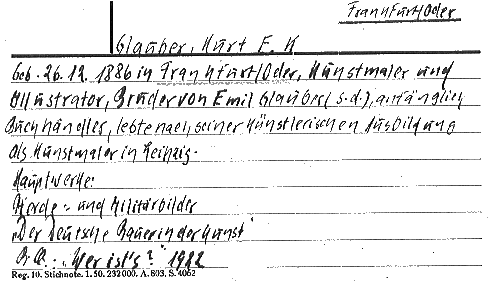 Frankfurt/Oder
Glauber, Kurt E. K
Geb. 26.12. 1886 in Frankfurt/Oder, Kunstmaler und
Illustrator, Bruder von Emil Glauber (s.d.), anfänglich
Buchhändler, lebte nach seiner künstlerischen Ausbildung
als Kunstmaler in Leipzig.
Hauptwerke:
Pferde- und Militärbilder
"Der Deutsche Bauer in der Kunst"
"Wer ist's?" 1922
Reg. 10. Stichnote. 1. 50. 232000. A. 803. S. 4062